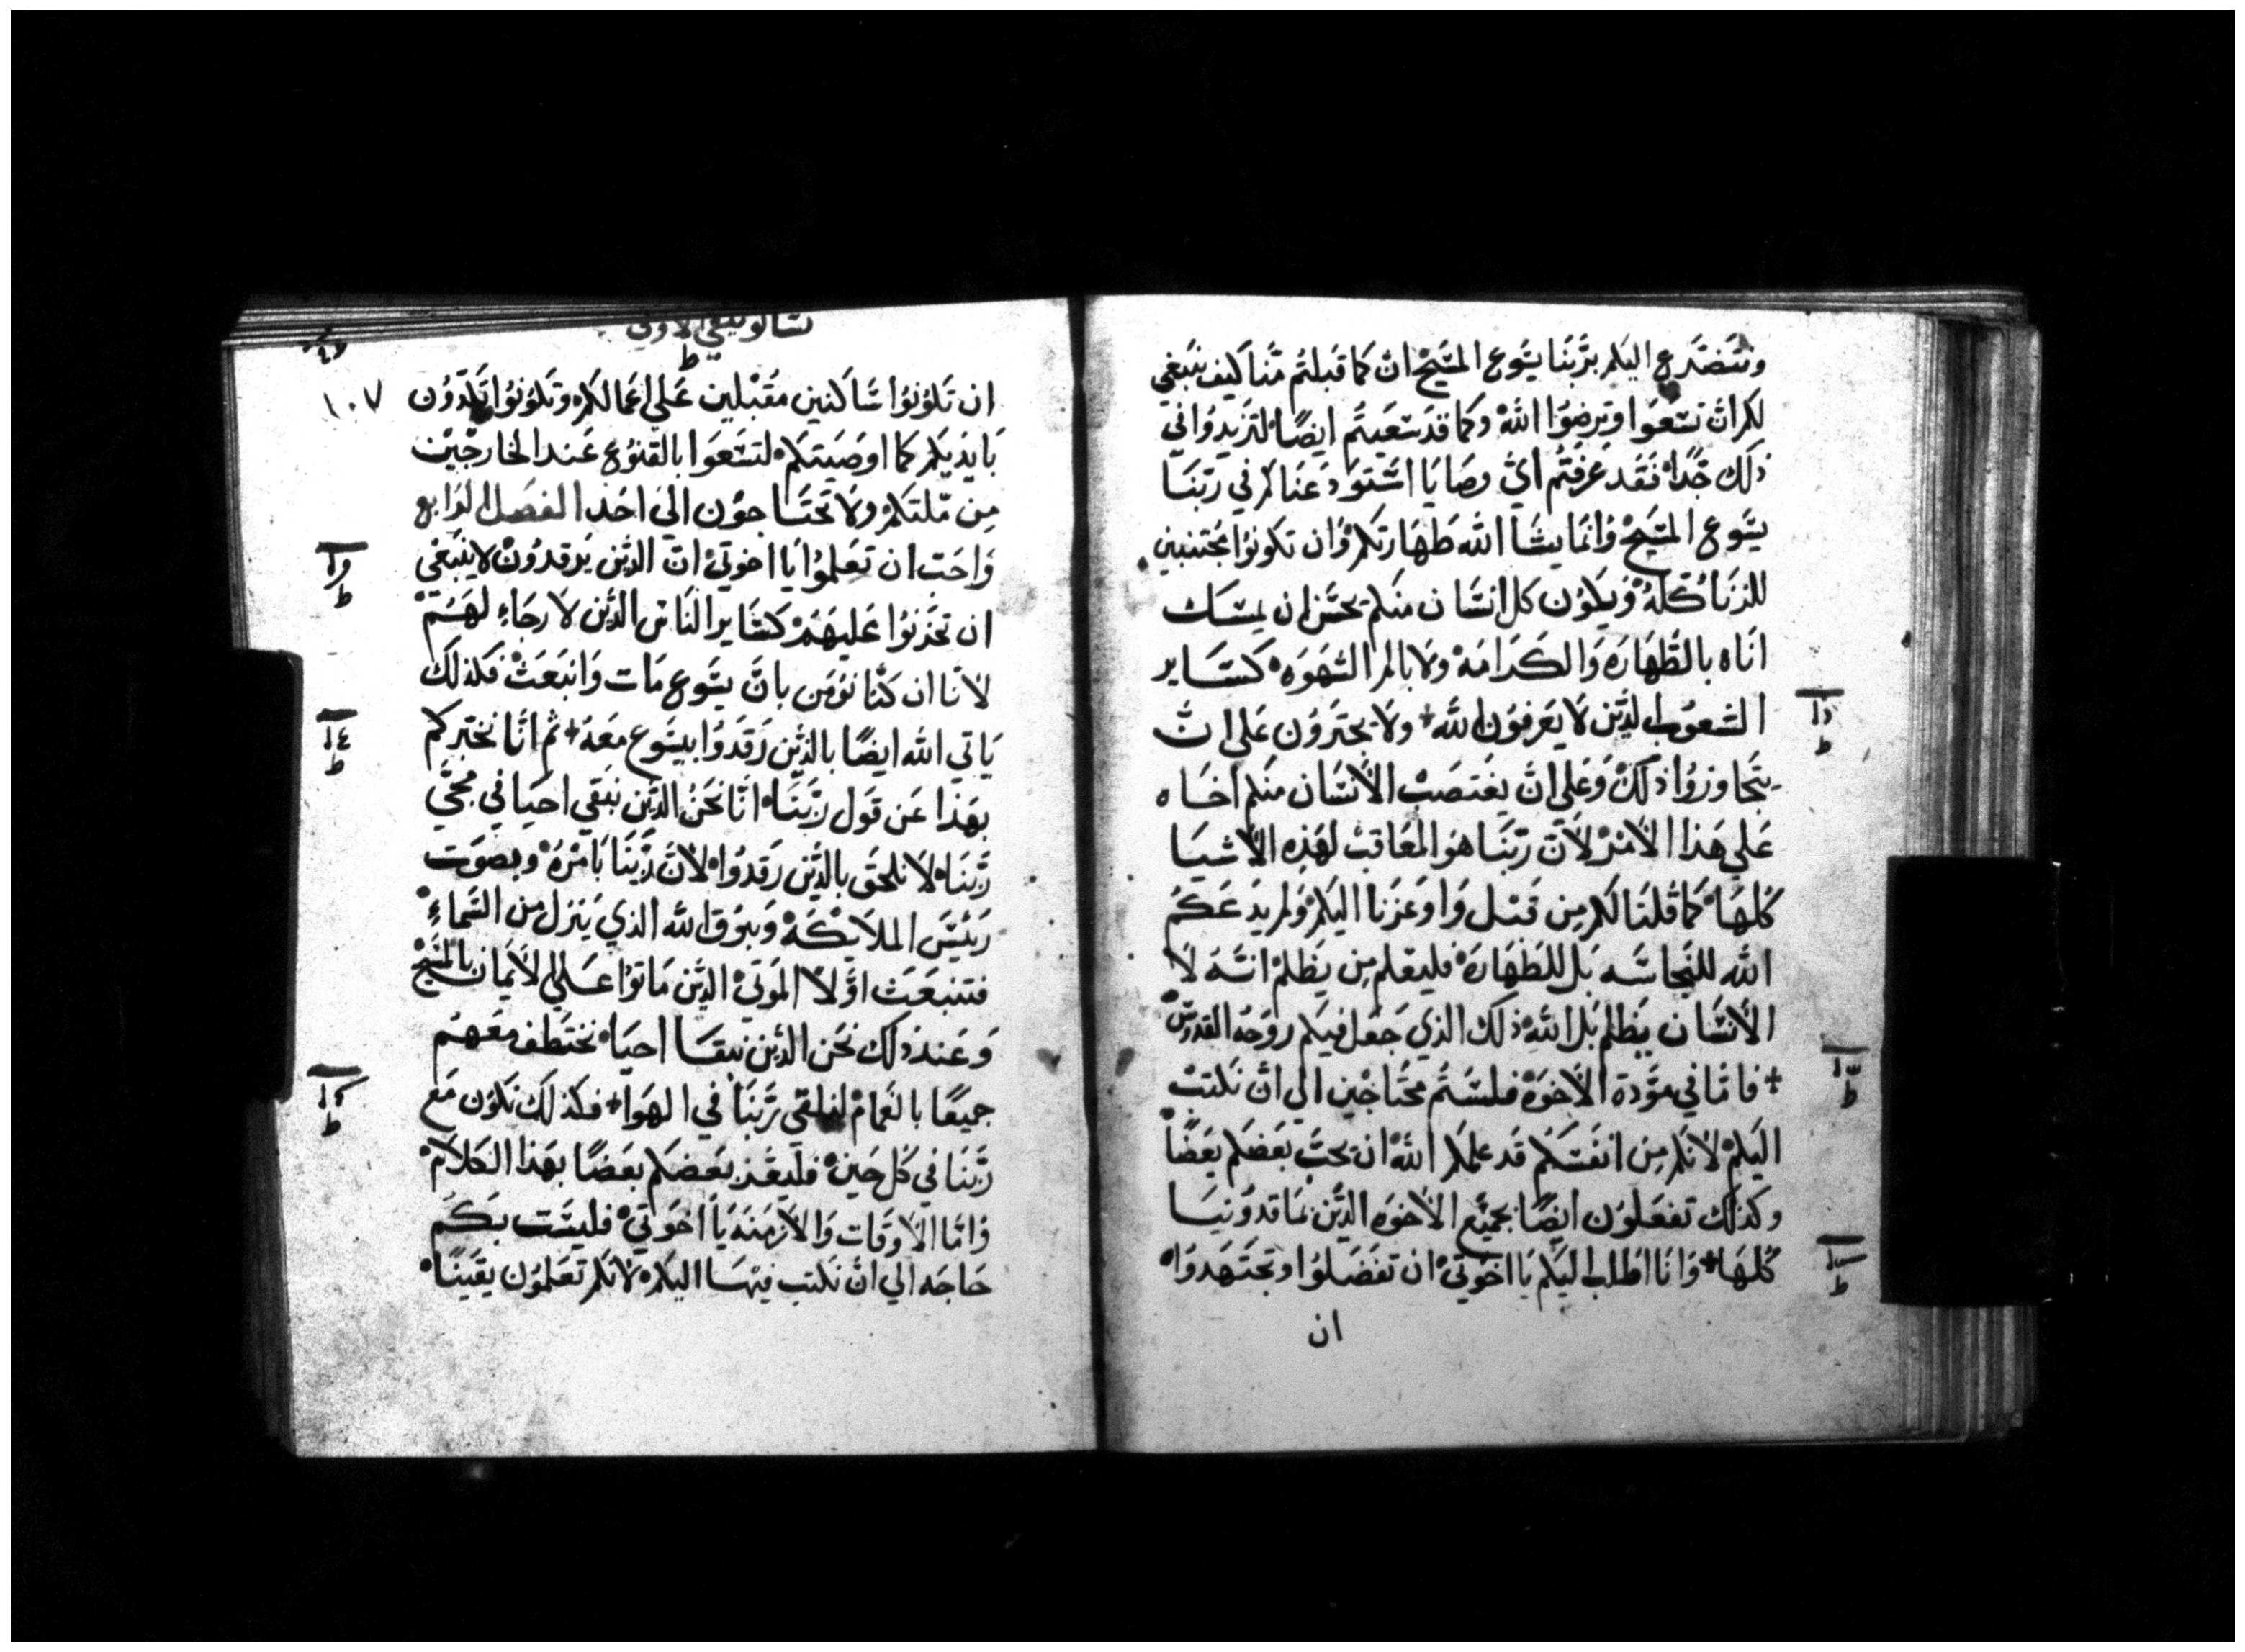 ونتضرع اليكم بربنا يسوع المسيح ان كما قبلتم منا كيف ينبغي
لكم ان تسعوا وترضوا الله وكما قد سعيتم ايضا لتزيدوا في
ذلك جدا فقد عرفتم اي وصايا استودعناكم في ربنا
يسوع المسيح وانما يشا الله طهارتكم وان تكونوا مجتنبين
للزنا كله ويكون كل انسان منكم يحسن ان يمسك
اناه بالطهاره والكرامه ولا بالم الشهوه كساير
الشعوب الذين لا يعرفون الله + ولا يجترون على ان
يتجاوزوا ذلك وعلي ان يغتصب الانسان منكم اخاه
علي هذا الامر لان ربنا هو المعاقب لهذه الاشيا
كلها كما قلنا لكم من قبل واوعزنا اليكم ولم يدعكم
الله للنجاسه بل للطهاره فليعلم من يظلم انه لا
الانسان يظلم بل الله ذلك الذي جعل فيكم روحه القدوس
+ فاما في مودة الاخوة فلستم محتاجين الي ان نكتب
اليكم لانكم من انفسكم قد علمكم الله ان يحب بعضكم بعضا
وكذلك تفعلون ايضا بجميع الاخوه الذين بماقدونيا
كلها + وانا اطلب اليكم يا اخوتي ان تفضلوا وتجتهدوا
ان
تسالونيقي الاولي
١٠٧
ان تكونوا ساكنين مقبلين علي اعمالكم وتكونوا تكدون
بايديكم كما اوصيتكم لتسعوا بالقنوع عند الخارجين
من ملتكم ولا تحتاجون الي احد الفصل الرابع
واحب ان تعلموا يا اخوتي ان الذين يرقدون لا ينبغي
ان تحزنوا عليهم كساير الناس الذين لا رجاء لهم
لانا ان كنا نومن بان يسوع مات وانبعث فكذلك
ياتي الله ايضا بالذين رقدوا بيسوع معه + ثم انا نخبركم
بهذا عن قول ربنا انا نحن الذين نبقي احيا في مجي
ربنا لا نلحق بالذين رقدوا لان ربنا بامره وبصوت
رييس الملايكه وببوق الله الذي ينزل من السماء
فتنبعث اولا الموتي الذين ماتوا علي الايمان بالمسيح
وعند ذلك نحن الذين نبقا احيا نختطف معهم
جميعا بالغمام لنلتقي ربنا في الهوا + فكذلك نكون مع
ربنا في كل حين فليعز بعضكم بعضا بهذا الكلام
واما الاوقات والازمنه يا اخوتي فليست بكم
حاجه الي ان نكتب فيها اليكم لانكم تعلمون يقينا